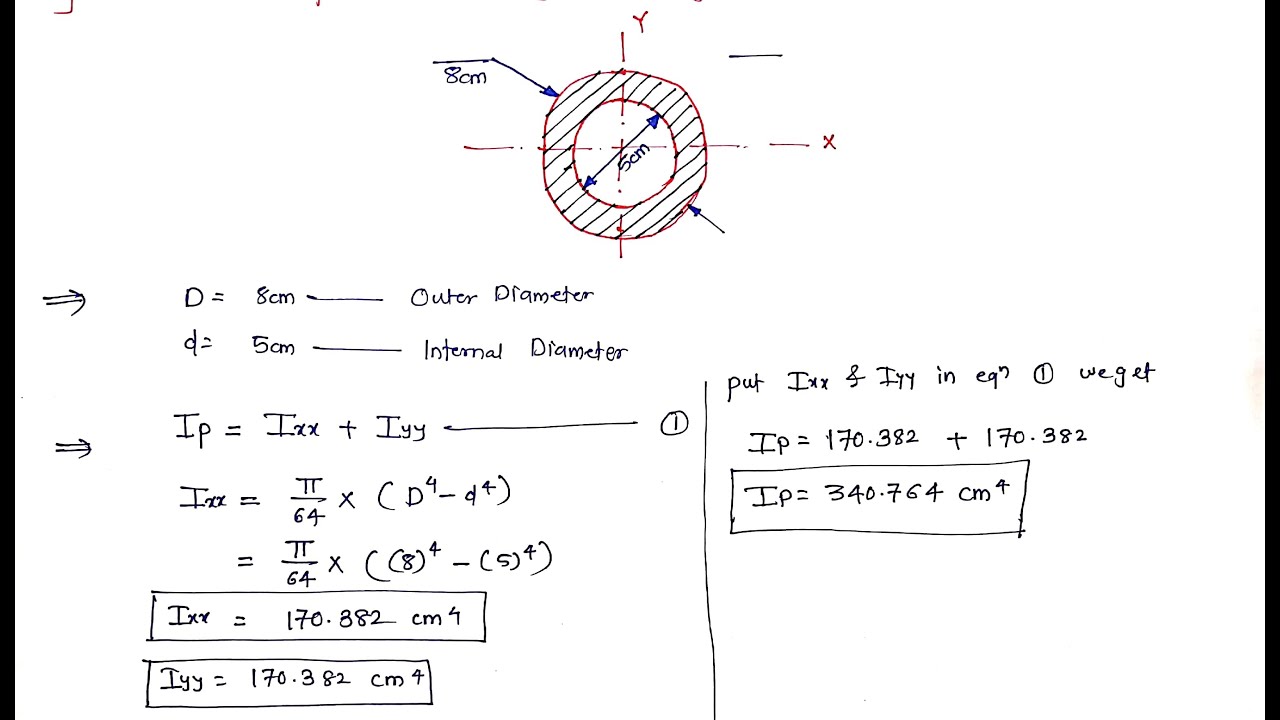 Y
8cm
X
5cm
⇒ D = 8cm —— Outer Diameter
d = 5cm —— Internal Diameter
⇒ Ip = Ixx + Iyy —— ①
Ixx = π/64 × (D⁴ - d⁴)
= π/64 × ((8)⁴ - (5)⁴)
Ixx = 170.382 cm⁴
Iyy = 170.382 cm⁴
put Ixx & Iyy in eqⁿ ① we get
Ip = 170.382 + 170.382
Ip = 340.764 cm⁴